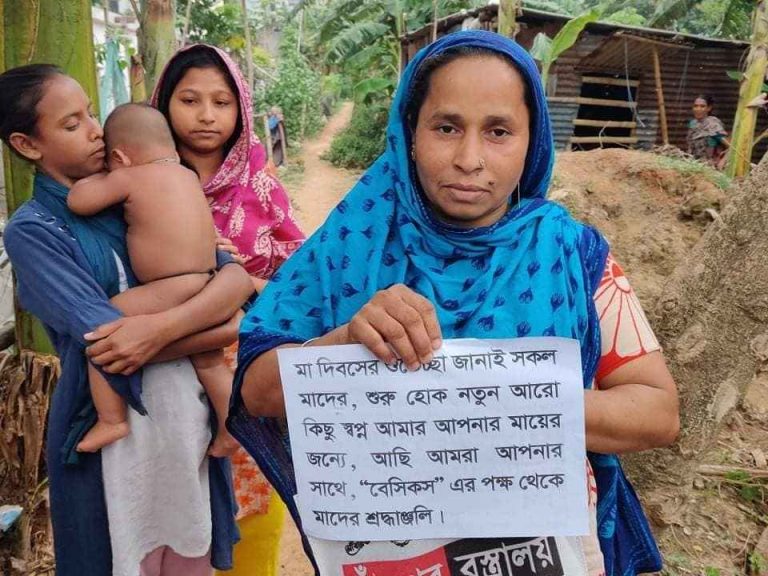 মা দিবসের শুভেচ্ছা জানাই সকল
মাদের, শুরু হোক নতুন আরো
কিছু স্বপ্ন আমার আপনার মায়ের
জন্যে, আছি আমরা আপনার
সাথে, “বেসিকস” এর পক্ষ থেকে
মাদের শ্রদ্ধাঞ্জলি।
বস্ত্রালয়